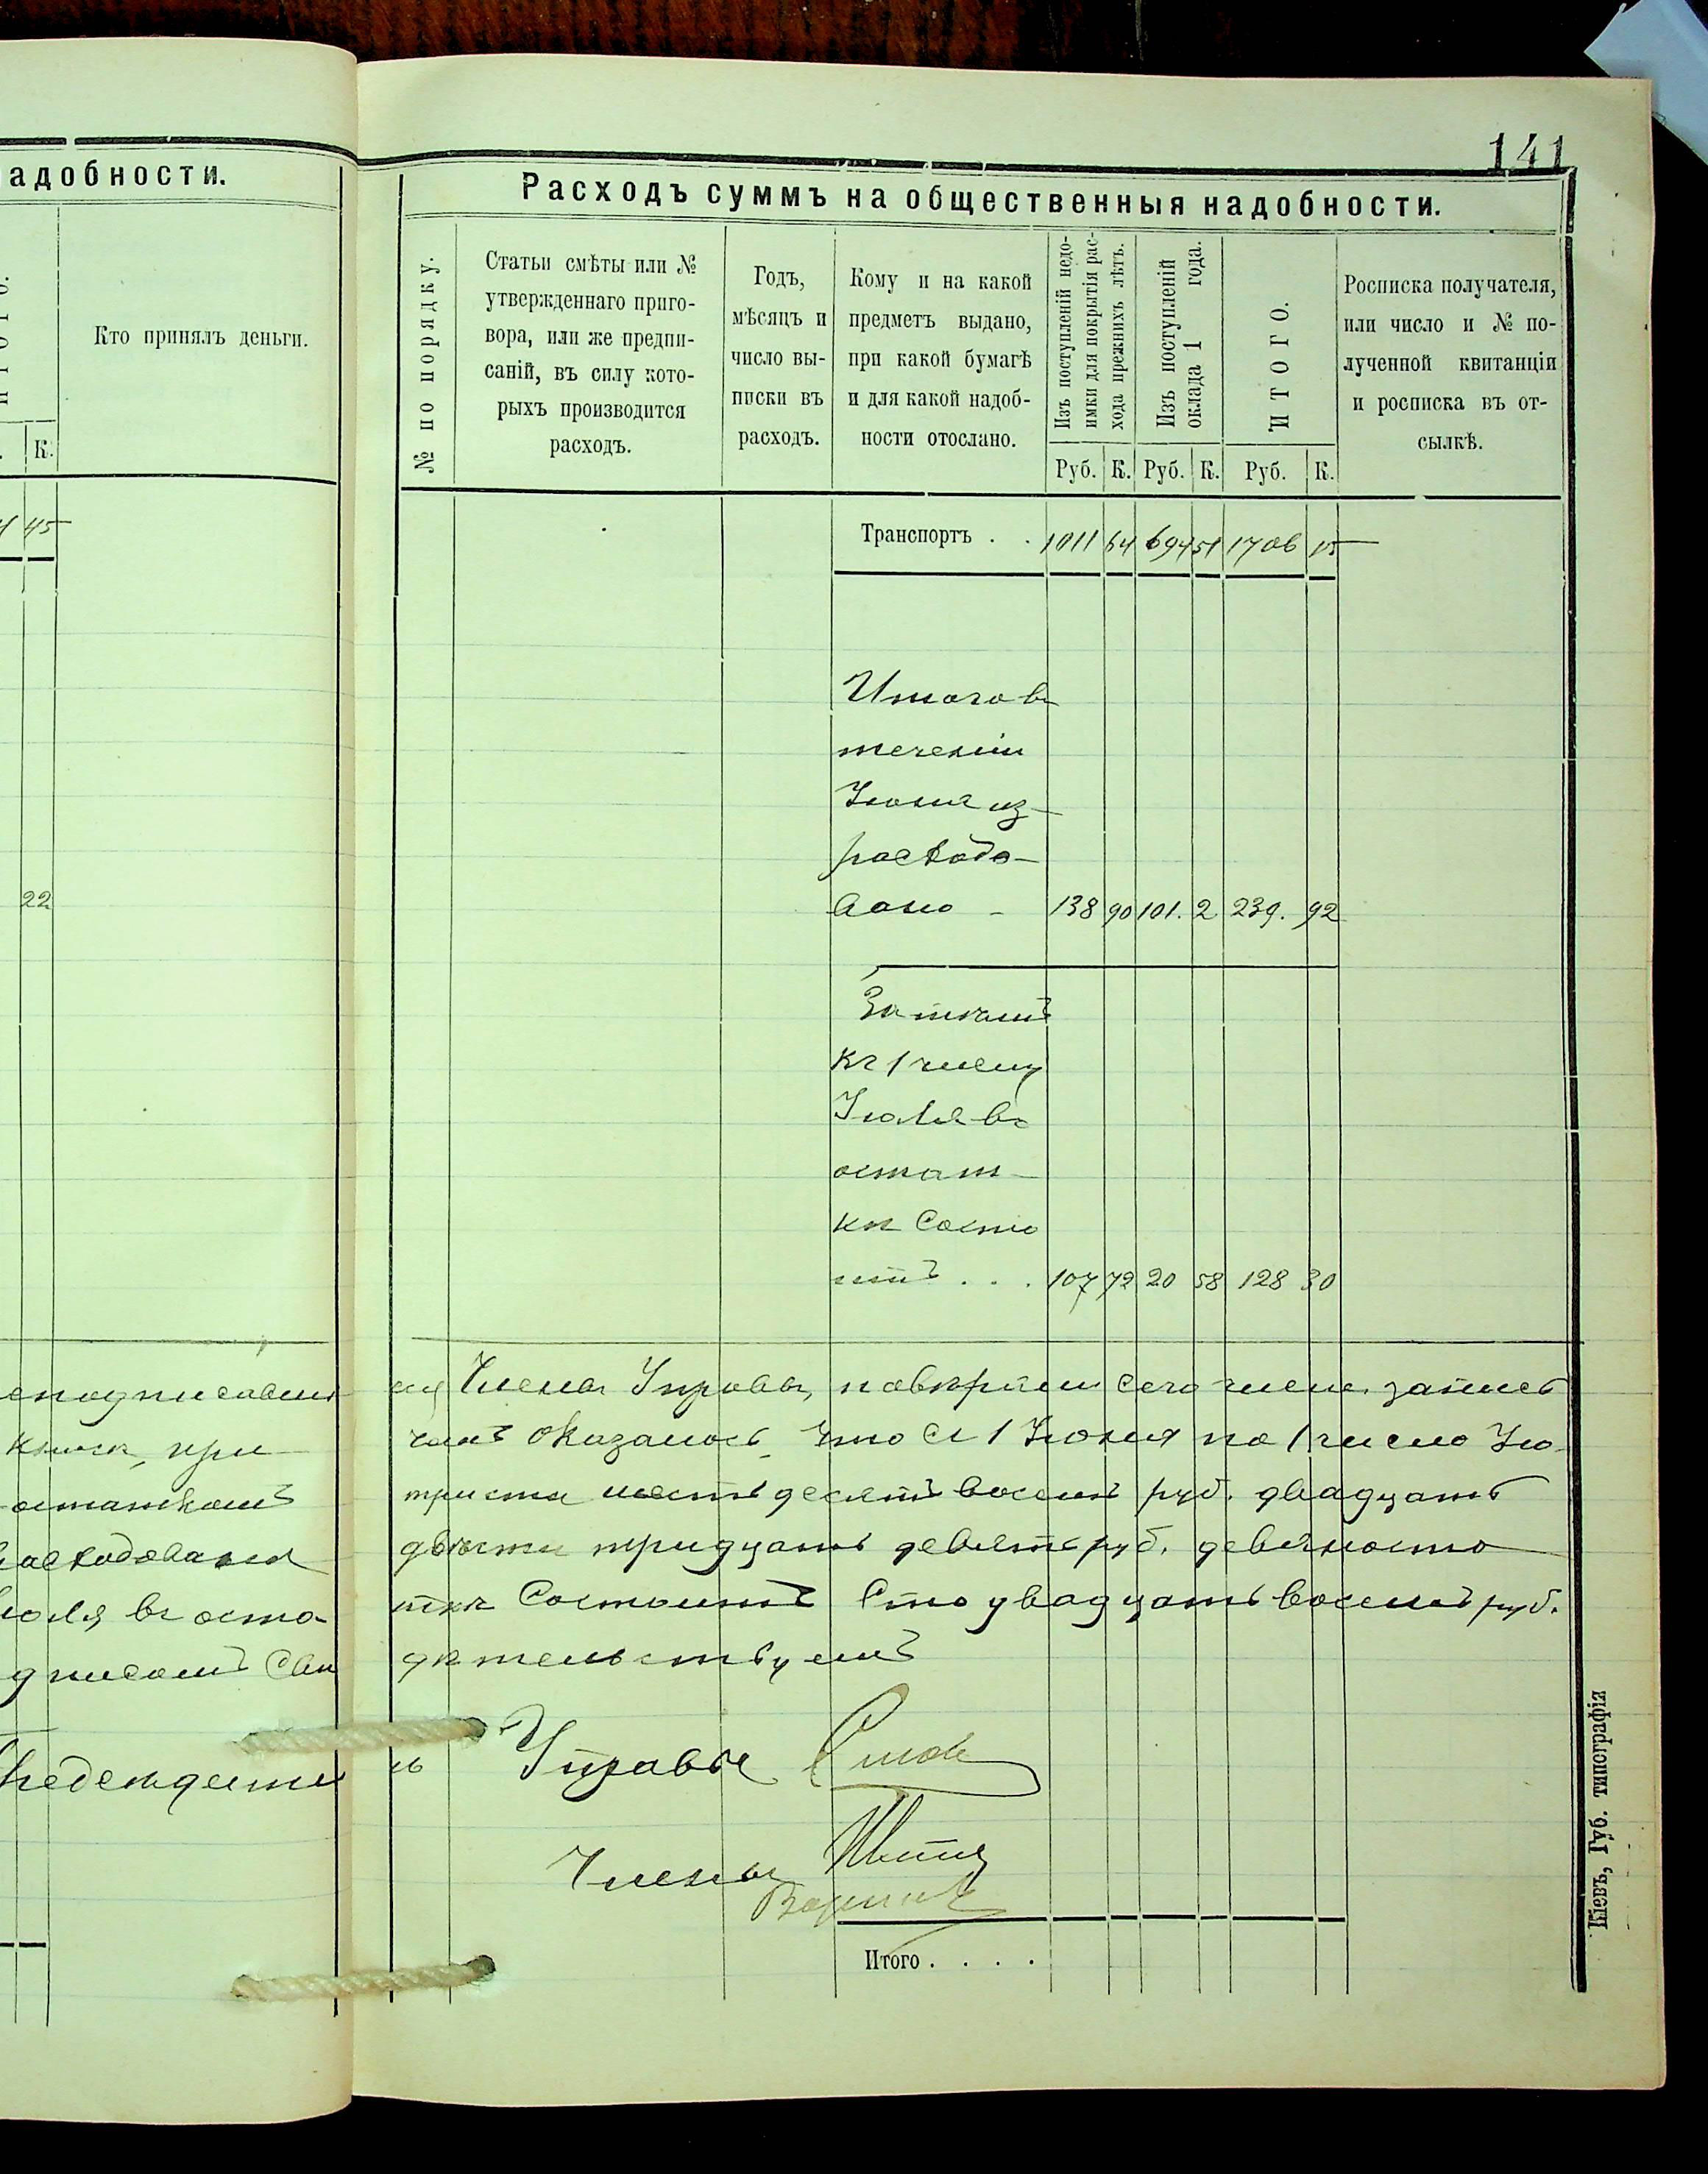 адобности.
Кто принялъ деньги.
К.
45
22
141
Расходъ суммъ на общественныя надобности.
№ по порядку.
Статьи смѣты или №
утвержденнаго приго-
вора, или же предпи-
саній, въ силу кото-
рыхъ производится
расходъ.
Годъ,
мѣсяцъ и
число вы-
писки въ
расходъ.
Кому и на какой
предметъ выдано,
при какой бумагѣ
и для какой надоб-
ности отослано.
Изъ поступленій недо-
имки для покрытія рас-
хода прежнихъ лѣтъ.
Изъ поступленій
оклада 1 года.
ИТОГО.
Росписка получателя,
или число и № по-
лученной квитанціи
и росписка въ от-
сылкѣ.
Руб. К. Руб. К. Руб. К.
Транспортъ . . 1011 64 694 51 1706 15
Итого въ
теченіи
Іюня из-
расходо-
вано - 138 90 101. 2 239. 92
Затѣмъ
къ 1 числу
Іюля въ
остат-
кѣ состо
итъ . . . 107 72 20 58 128 30
Члены Управы, повѣрили сего числа
оказалось что съ 1 Іюня по 1 число Ію-
остаткомъ триста шестьдесятъ восемь руб. двадцать
двѣсти тридцать девять руб. девяносто
юля въ оста- ткѣ состоитъ сто двадцать восемь руб.
дѣтельствуемъ
Управы
Члены
Итого . . . .
Кіевъ, Губ. типографія